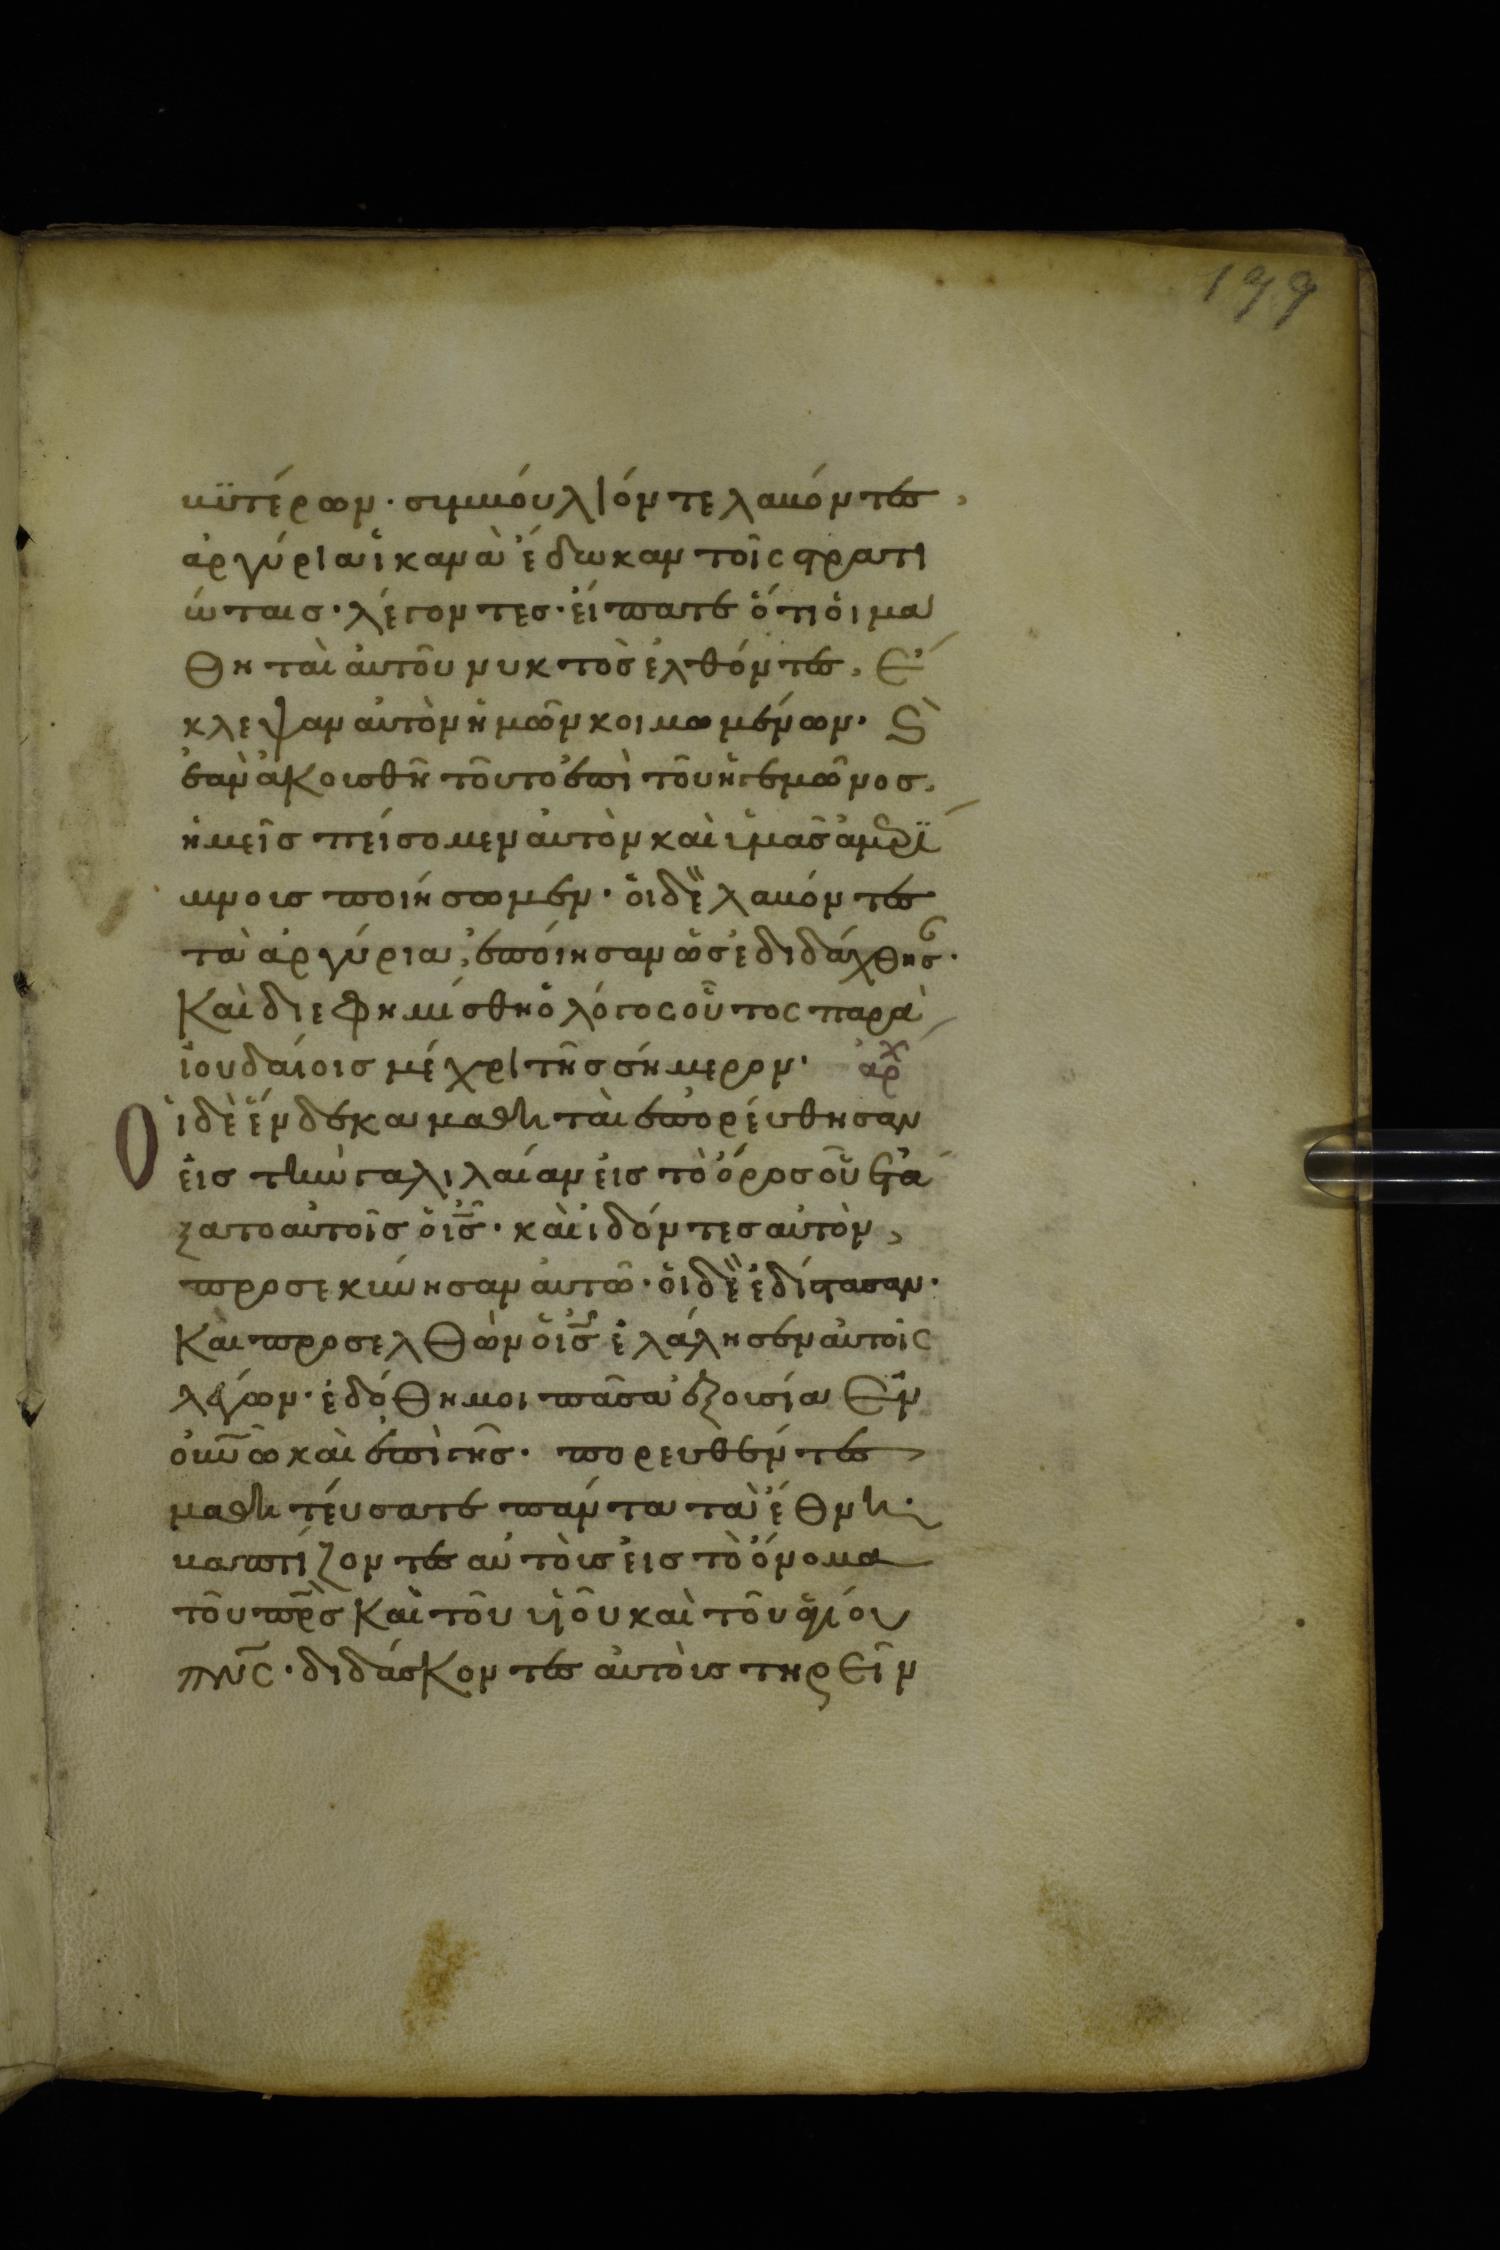 199
βϋτέρων· συμβούλιόν τε λαβόντες,
ἀργύρια ἱκανὰ ἔδωκαν τοῖς στρατι
ώταις· λέγοντες· εἴπατε ὅτι ὁι μα
θηταὶ ἀυτοῦ νυκτὸς ἐλθόντες, ἔ
κλεψαν ἀυτὸν ἡμῶν κοιμωμένων· καὶ
ἐὰν ἀκουσθῆ τοῦτο ἐπὶ τοῦ ἡγεμῶνος,
ἡμεῖς πείσομεν ἀυτὸν καὶ ὑμᾶς ἀμερί
μνους ποιήσωμεν· ὁι δὲ λαβόντες
τὰ ἀργύρια, ἐποίησαν ὡς ἐδιδάχθησ·
Καὶ διεφημίσθη ὁ λόγος οὗτος παρὰ
ἰουδαίοις μέχρι τῆς σήμερον· ἀρχ
Ὁι δὲ ἕνδεκα μαθηταὶ ἐπορέυθησαν
ἐις τὴν γαλιλαίαν ἐις τὸ ὄρος οὗ ἐτά
ξατο αὐτοῖς ὁ ις· καὶ ἰδόντες αὐτὸν,
προσεκύνησαν ἀυτῶ· ὁι δὲ ἐδίστασαν·
Καὶ προσελθὼν ὁ ις ἐλάλησεν ἀυτοῖς
λέγων· ἐδόθη μοι πᾶσα ἐξουσία ἐν
ὀυνῶ καὶ ἐπὶ γῆς· πορευθέντες
μαθητέυσατε πάντα τὰ ἔθνη·
βαπτίζοντες αὐτοὺς ἐις τὸ ὄνομα
τοῦ πρς Καὶ τοῦ υἱοῦ καὶ τοῦ ἁγίου
πνς· διδάσκοντες ἀυτοὺς τηρεῖν